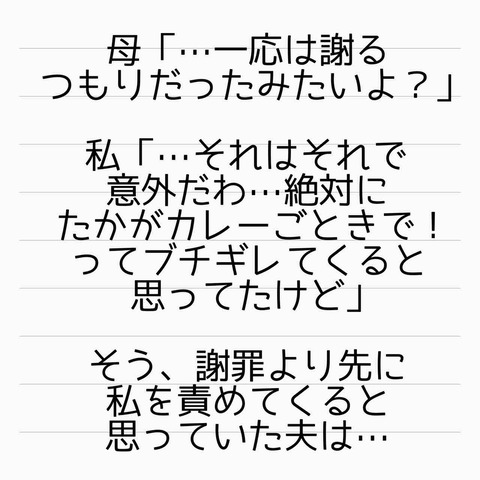 母「…一応は謝る
つもりだったみたいよ？」
私「…それはそれで
意外だわ…絶対に
たかがカレーごときで！
ってブチギレてくると
思ってたけど」
そう、謝罪より先に
私を責めてくると
思っていた夫は…